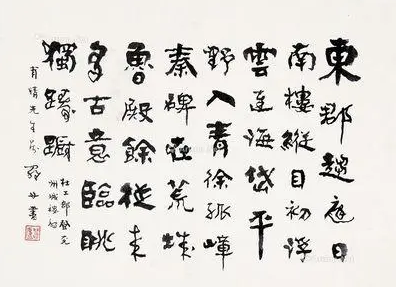 東郡趨庭日
南樓縱目初浮
雲連海岱平
野入青徐孤嶂
秦碑在荒城
魯殿餘從來
多古意臨眺
獨躊躇
杜工部登兗
州城樓詩
晴先生 羅丹書